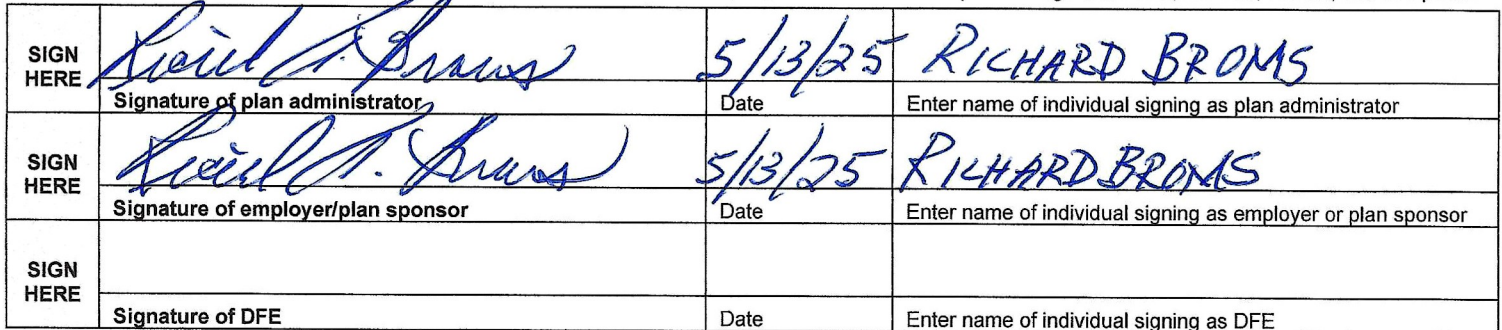 SIGN HERE
5/13/25 RICHARD BROMS
Signature of plan administrator Date Enter name of individual signing as plan administrator
SIGN HERE
5/13/25 RICHARD BROMS
Signature of employer/plan sponsor Date Enter name of individual signing as employer or plan sponsor
SIGN HERE
Signature of DFE Date Enter name of individual signing as DFE